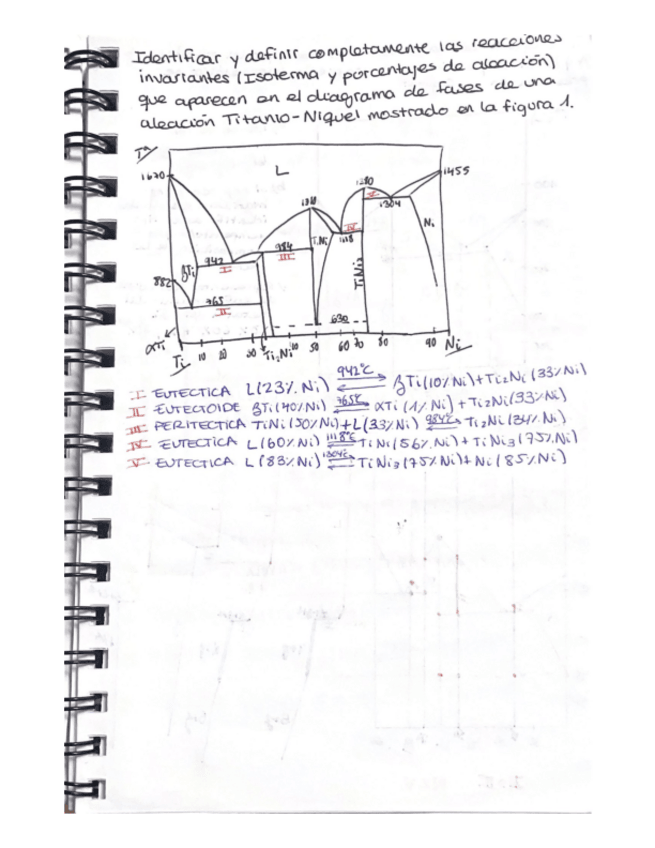 Identificar y definir completamente las reacciones
invariantes (Isoterma y porcentajes de aleación)
que aparecen en el diagrama de fases de una
aleación Titanio-Niquel mostrado en la figura 1.
Tª
L
1670
1455
1310
1280
1304
V
Ni
942
I
βTi
984
III
TiNi
IV
1118
TiNi3
882
765
II
630
αTi
Ti 10 20 30 Ti2Ni 40 50 60 70 80 90 Ni
I EUTECTICA L(23% Ni) 942°C βTi(10%Ni)+Ti2Ni(33%Ni)
II EUTECTOIDE βTi(40%Ni) 765°C αTi(1% Ni)+Ti2Ni(33%Ni)
III PERITECTICA TiNi(50%Ni)+L(33%Ni) 984°C Ti2Ni(34%Ni)
IV EUTECTICA L(60%Ni) 1118°C TiNi(56%Ni)+TiNi3(75%Ni)
V EUTECTICA L(83%Ni) 1304°C TiNi3(75%Ni)+Ni(85%Ni)